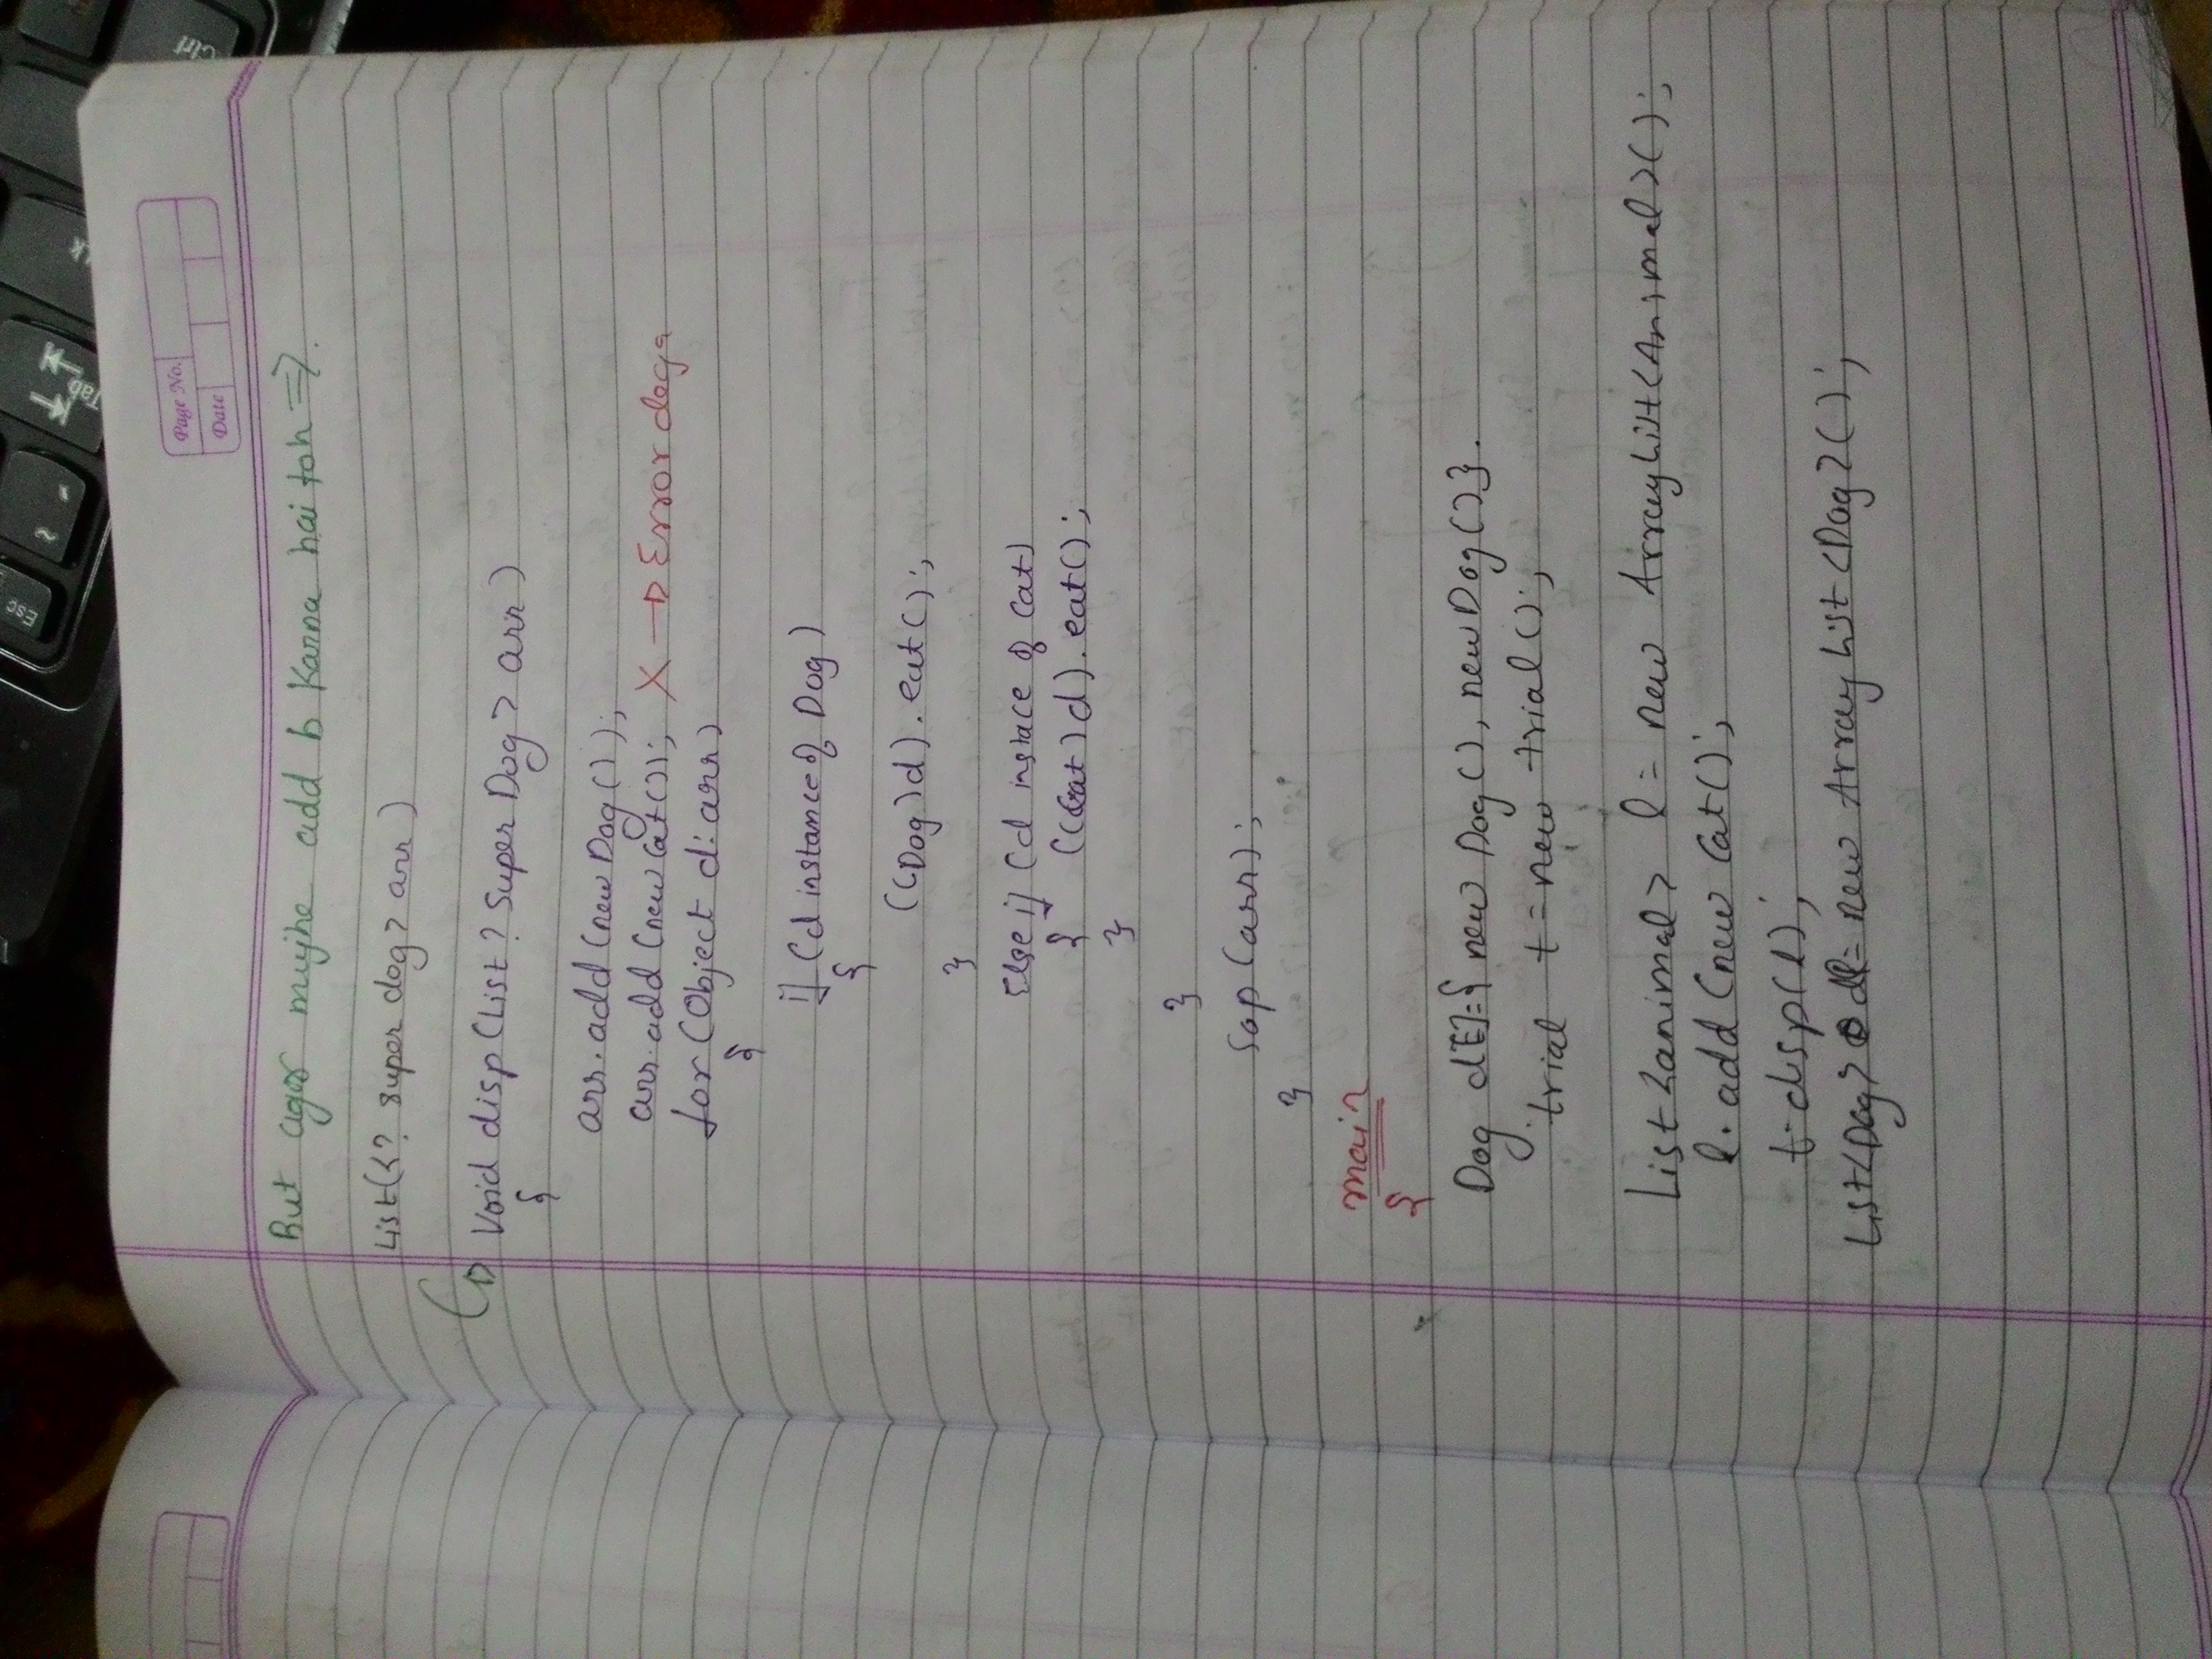 Esc
~
Tab
Ctrl
Page No.
Date
But agar mujhe add b karna hai toh =>.
List(<? super dog> arr)
Void disp (List ? Super Dog> arr)
{
arr.add (new Dog ());
arr.add (new Cat()); X → Error dega
for (Object d: arr)
{
if (d instance of Dog)
{
((Dog)d).eat();
}
Else if (d instace of Cat)
{ ((Cat)d).eat();
}
}
Sop (arr);
}
main
{
Dog d[]={ new Dog (), new Dog ()}.
trial t = new trial ();
List<animal> l = new ArrayList<Animal>();
l.add (new Cat();
t.disp(l);
List<Dog> dl= new ArrayList<Dog>();